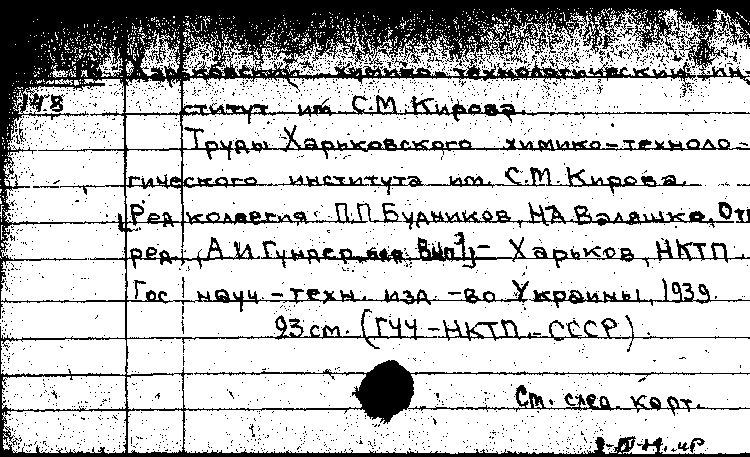 Харьковский химико-технологический ин-
148 ститут им С.М.Кирова.
Труды Харьковского химико-техноло-
гического института им. С.М.Кирова.
[Ред коллегия: П.П.Будников, Н.А.Валяшко, Отв
ред. А.И.Гундер. Вып.3]- Харьков, НКТП.
Гос науч-техн. изд-во Украины, 1939.
23 см. (ГУУ-НКТП.-СССР).
См. след. карт.